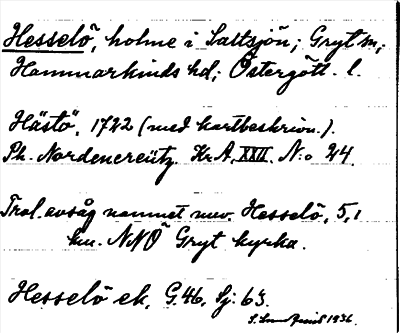 Hesselö, holme i Saltsjön; Gryt sn;
Hammarkinds hd; Östergötl. l.
Hästö, 1722 (med kartbeskrivn.).
Ph. Nordencreütz. Kr.A, XXII. N:o 24.
Trol. avsåg namnet nuv. Hesselö, 5,1
km. NNÖ Gryt kyrka.
Hesselö ek. G.46, Sj: 63.
1936.